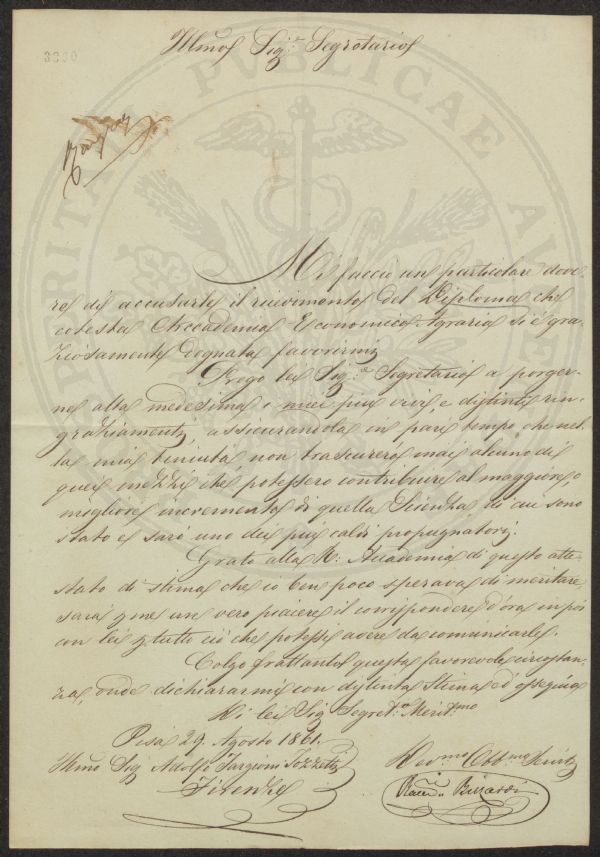 Illmo Sig.e Segretario
3330
Mi faccio un particolare dove
re di accusarle il ricevimento del Diploma che
cotesta Accademia Economico-Agraria si è gra-
ziosamente degnata favorirmi
Prego lei Sig.e Segretario a porger-
ne alla medesima i miei più vivi, e distinti rin-
graziamenti, assicurandola in pari tempo che nel-
la mia tenuità non trascurerò mai alcuno di
quei mezzi che potessero contribuire al maggiore, o
migliore incremento di quella Scienza di cui sono
stato e sarò uno dei più caldi propugnatori.
Grato alla R. Accademia di questo atte-
stato di stima che io ben poco sperava di meritare
sarà p me un vero piacere il corrispondere d'ora in poi
con lei p tutto ciò che potessi avere da comunicarle.
Colgo frattanto questa favorevole circostan-
za, onde dichiararmi con distinta stima ed ossequio
Di lei Sig Segret.o Merit.mo
Pisa 29. Agosto 1861.
Illmo Sig Adolfo Targioni Tozzetti
Firenze
Dev.mo Obb.mo Servit